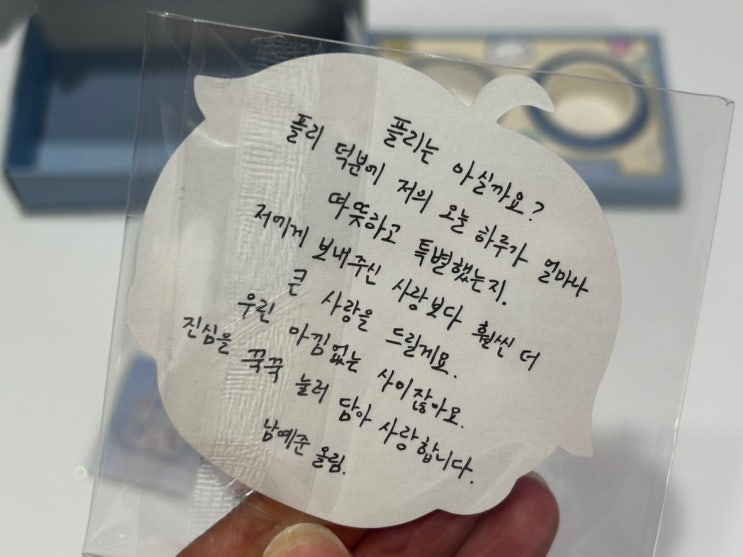 플리는 아실까요?
플리 덕분에 저의 오늘 하루가 얼마나
따뜻하고 특별했는지.
저에게 보내주신 사랑보다 훨씬 더
큰 사랑을 드릴게요.
우린 아낌없는 사이잖아요.
진심을 꾹꾹 눌러 담아 사랑합니다.
남예준 올림.